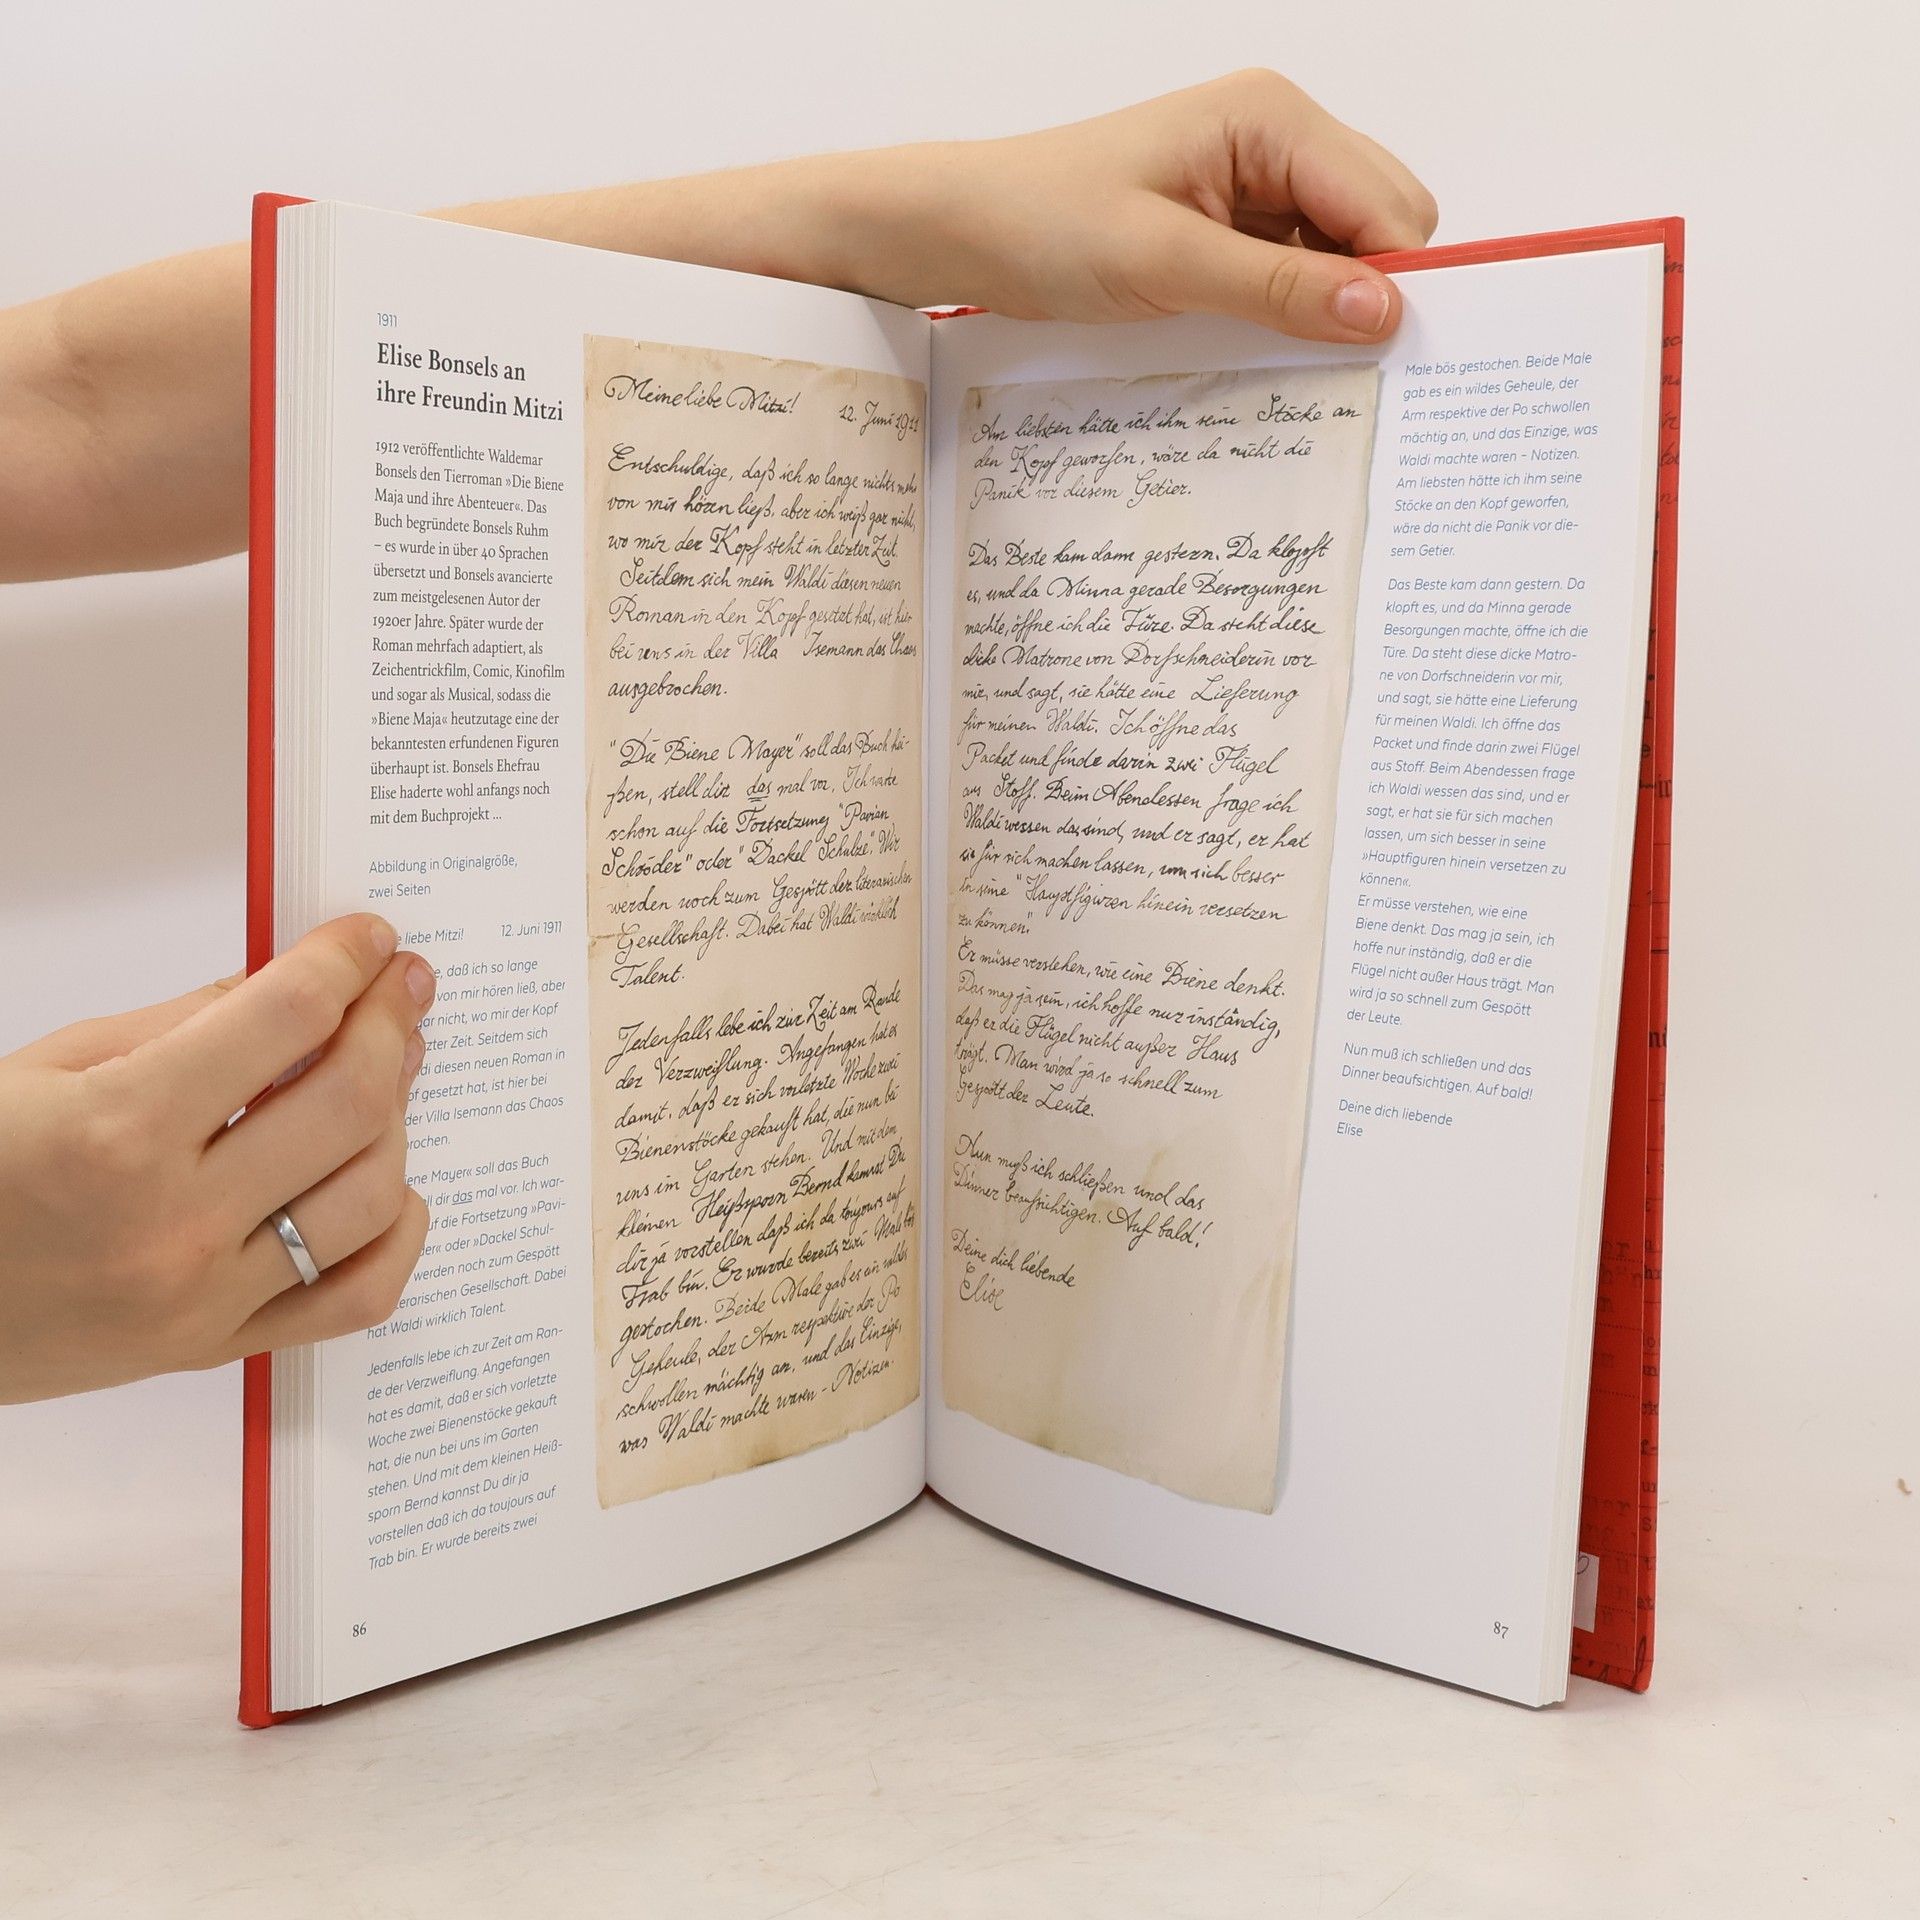 1911
Elise Bonsels an
ihre Freundin Mitzi
1912 veröffentlichte Waldemar
Bonsels den Tierroman »Die Biene
Maja und ihre Abenteuer«. Das
Buch begründete Bonsels Ruhm
– es wurde in über 40 Sprachen
übersetzt und Bonsels avancierte
zum meistgelesenen Autor der
1920er Jahre. Später wurde der
Roman mehrfach adaptiert, als
Zeichentrickfilm, Comic, Kinofilm
und sogar als Musical, sodass die
»Biene Maja« heutzutage eine der
bekanntesten erfundenen Figuren
überhaupt ist. Bonsels Ehefrau
Elise haderte wohl anfangs noch
mit dem Buchprojekt ...
Abbildung in Originalgröße,
zwei Seiten
liebe Mitzi! 12. Juni 1911
daß ich so lange
von mir hören ließ, aber
gar nicht, wo mir der Kopf
Zeit. Seitdem sich
diesen neuen Roman in
gesetzt hat, ist hier bei
der Villa Isemann das Chaos
Mayer« soll das Buch
dir das mal vor. Ich war-
die Fortsetzung »Pavi-
oder »Dackel Schul-
werden noch zum Gespött
Gesellschaft. Dabei
hat Waldi wirklich Talent.
Jedenfalls lebe ich zur Zeit am Ran-
de der Verzweiflung. Angefangen
hat es damit, daß er sich vorletzte
Woche zwei Bienenstöcke gekauft
hat, die nun bei uns im Garten
stehen. Und mit dem kleinen Heiß-
sporn Bernd kannst Du dir ja
vorstellen daß ich da toujours auf
Trab bin. Er wurde bereits zwei
86
Meine liebe Mitzi!
12. Juni 1911
Entschuldige, daß ich so lange nichts mehr
von mir hören ließ, aber ich weiß gar nicht,
wo mir der Kopf steht in letzter Zeit.
Seitdem sich mein Waldi diesen neuen
Roman in den Kopf gesetzt hat, ist hier
bei uns in der Villa Isemann das Chaos
ausgebrochen.
"Die Biene Mayer" soll das Buch hei-
ßen, stell dir das mal vor. Ich warte
schon auf die Fortsetzung "Pavian
Schröder" oder "Dackel Schulze". Wir
werden noch zum Gespött der literarischen
Gesellschaft. Dabei hat Waldi wirklich
Talent.
Jedenfalls lebe ich zur Zeit am Rande
der Verzweiflung. Angefangen hat es
damit, daß er sich vorletzte Woche zwei
Bienenstöcke gekauft hat, die nun bei
uns im Garten stehen. Und mit dem
kleinen Heißsporn Bernd kannst Du
dir ja vorstellen daß ich da toujours auf
Trab bin. Er wurde bereits zwei Male bös
gestochen. Beide Male gab es ein wildes
Geheule, der Arm respektive der Po
schwollen mächtig an, und das Einzige,
was Waldi machte waren – Notizen.
Am liebsten hätte ich ihm seine Stöcke an
den Kopf geworfen, wäre da nicht die
Panik vor diesem Getier.
Das Beste kam dann gestern. Da klopft
es, und da Minna gerade Besorgungen
machte, öffne ich die Türe. Da steht diese
dicke Matrone von Dorfschneiderin vor
mir, und sagt, sie hätte eine Lieferung
für meinen Waldi. Ich öffne das
Packet und finde darin zwei Flügel
aus Stoff. Beim Abendessen frage ich
Waldi wessen das sind, und er sagt, er hat
sie für sich machen lassen, um sich besser
in seine "Hauptfiguren hinein versetzen
zu können".
Er müsse verstehen, wie eine Biene denkt.
Das mag ja sein, ich hoffe nur inständig,
daß er die Flügel nicht außer Haus
trägt. Man wird ja so schnell zum
Gespött der Leute.
Nun muß ich schließen und das
Dinner beaufsichtigen. Auf bald!
Deine dich liebende
Elise
Male bös gestochen. Beide Male
gab es ein wildes Geheule, der
Arm respektive der Po schwollen
mächtig an, und das Einzige, was
Waldi machte waren – Notizen.
Am liebsten hätte ich ihm seine
Stöcke an den Kopf geworfen,
wäre da nicht die Panik vor die-
sem Getier.
Das Beste kam dann gestern. Da
klopft es, und da Minna gerade
Besorgungen machte, öffne ich die
Türe. Da steht diese dicke Matro-
ne von Dorfschneiderin vor mir,
und sagt, sie hätte eine Lieferung
für meinen Waldi. Ich öffne das
Packet und finde darin zwei Flügel
aus Stoff. Beim Abendessen frage
ich Waldi wessen das sind, und er
sagt, er hat sie für sich machen
lassen, um sich besser in seine
»Hauptfiguren hinein versetzen zu
können«.
Er müsse verstehen, wie eine
Biene denkt. Das mag ja sein, ich
hoffe nur inständig, daß er die
Flügel nicht außer Haus trägt. Man
wird ja so schnell zum Gespött
der Leute.
Nun muß ich schließen und das
Dinner beaufsichtigen. Auf bald!
Deine dich liebende
Elise
87